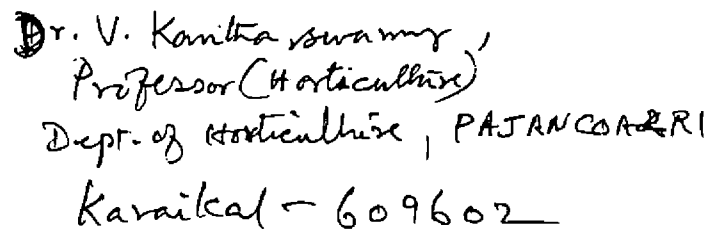 Dr. V. Kanthaswamy,
Professor (Horticulture)
Dept. of Horticulture, PAJANCOA&RI
Karaikal - 609602